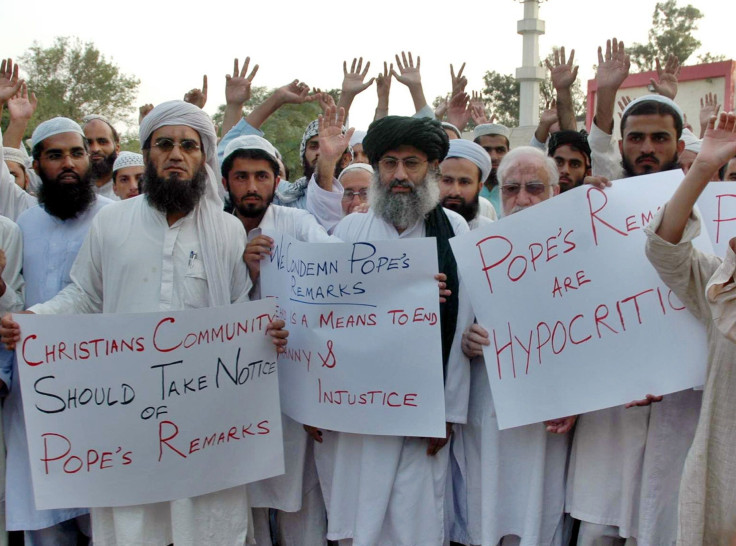 CHRISTIANS COMMUNITY
SHOULD TAKE NOTICE
OF
POPE'S REMARKS
WE CONDEMN POPE'S
REMARKS
IS A MEANS TO END
&
INJUSTICE
POPE'S
ARE
HYPOCRITIC
P